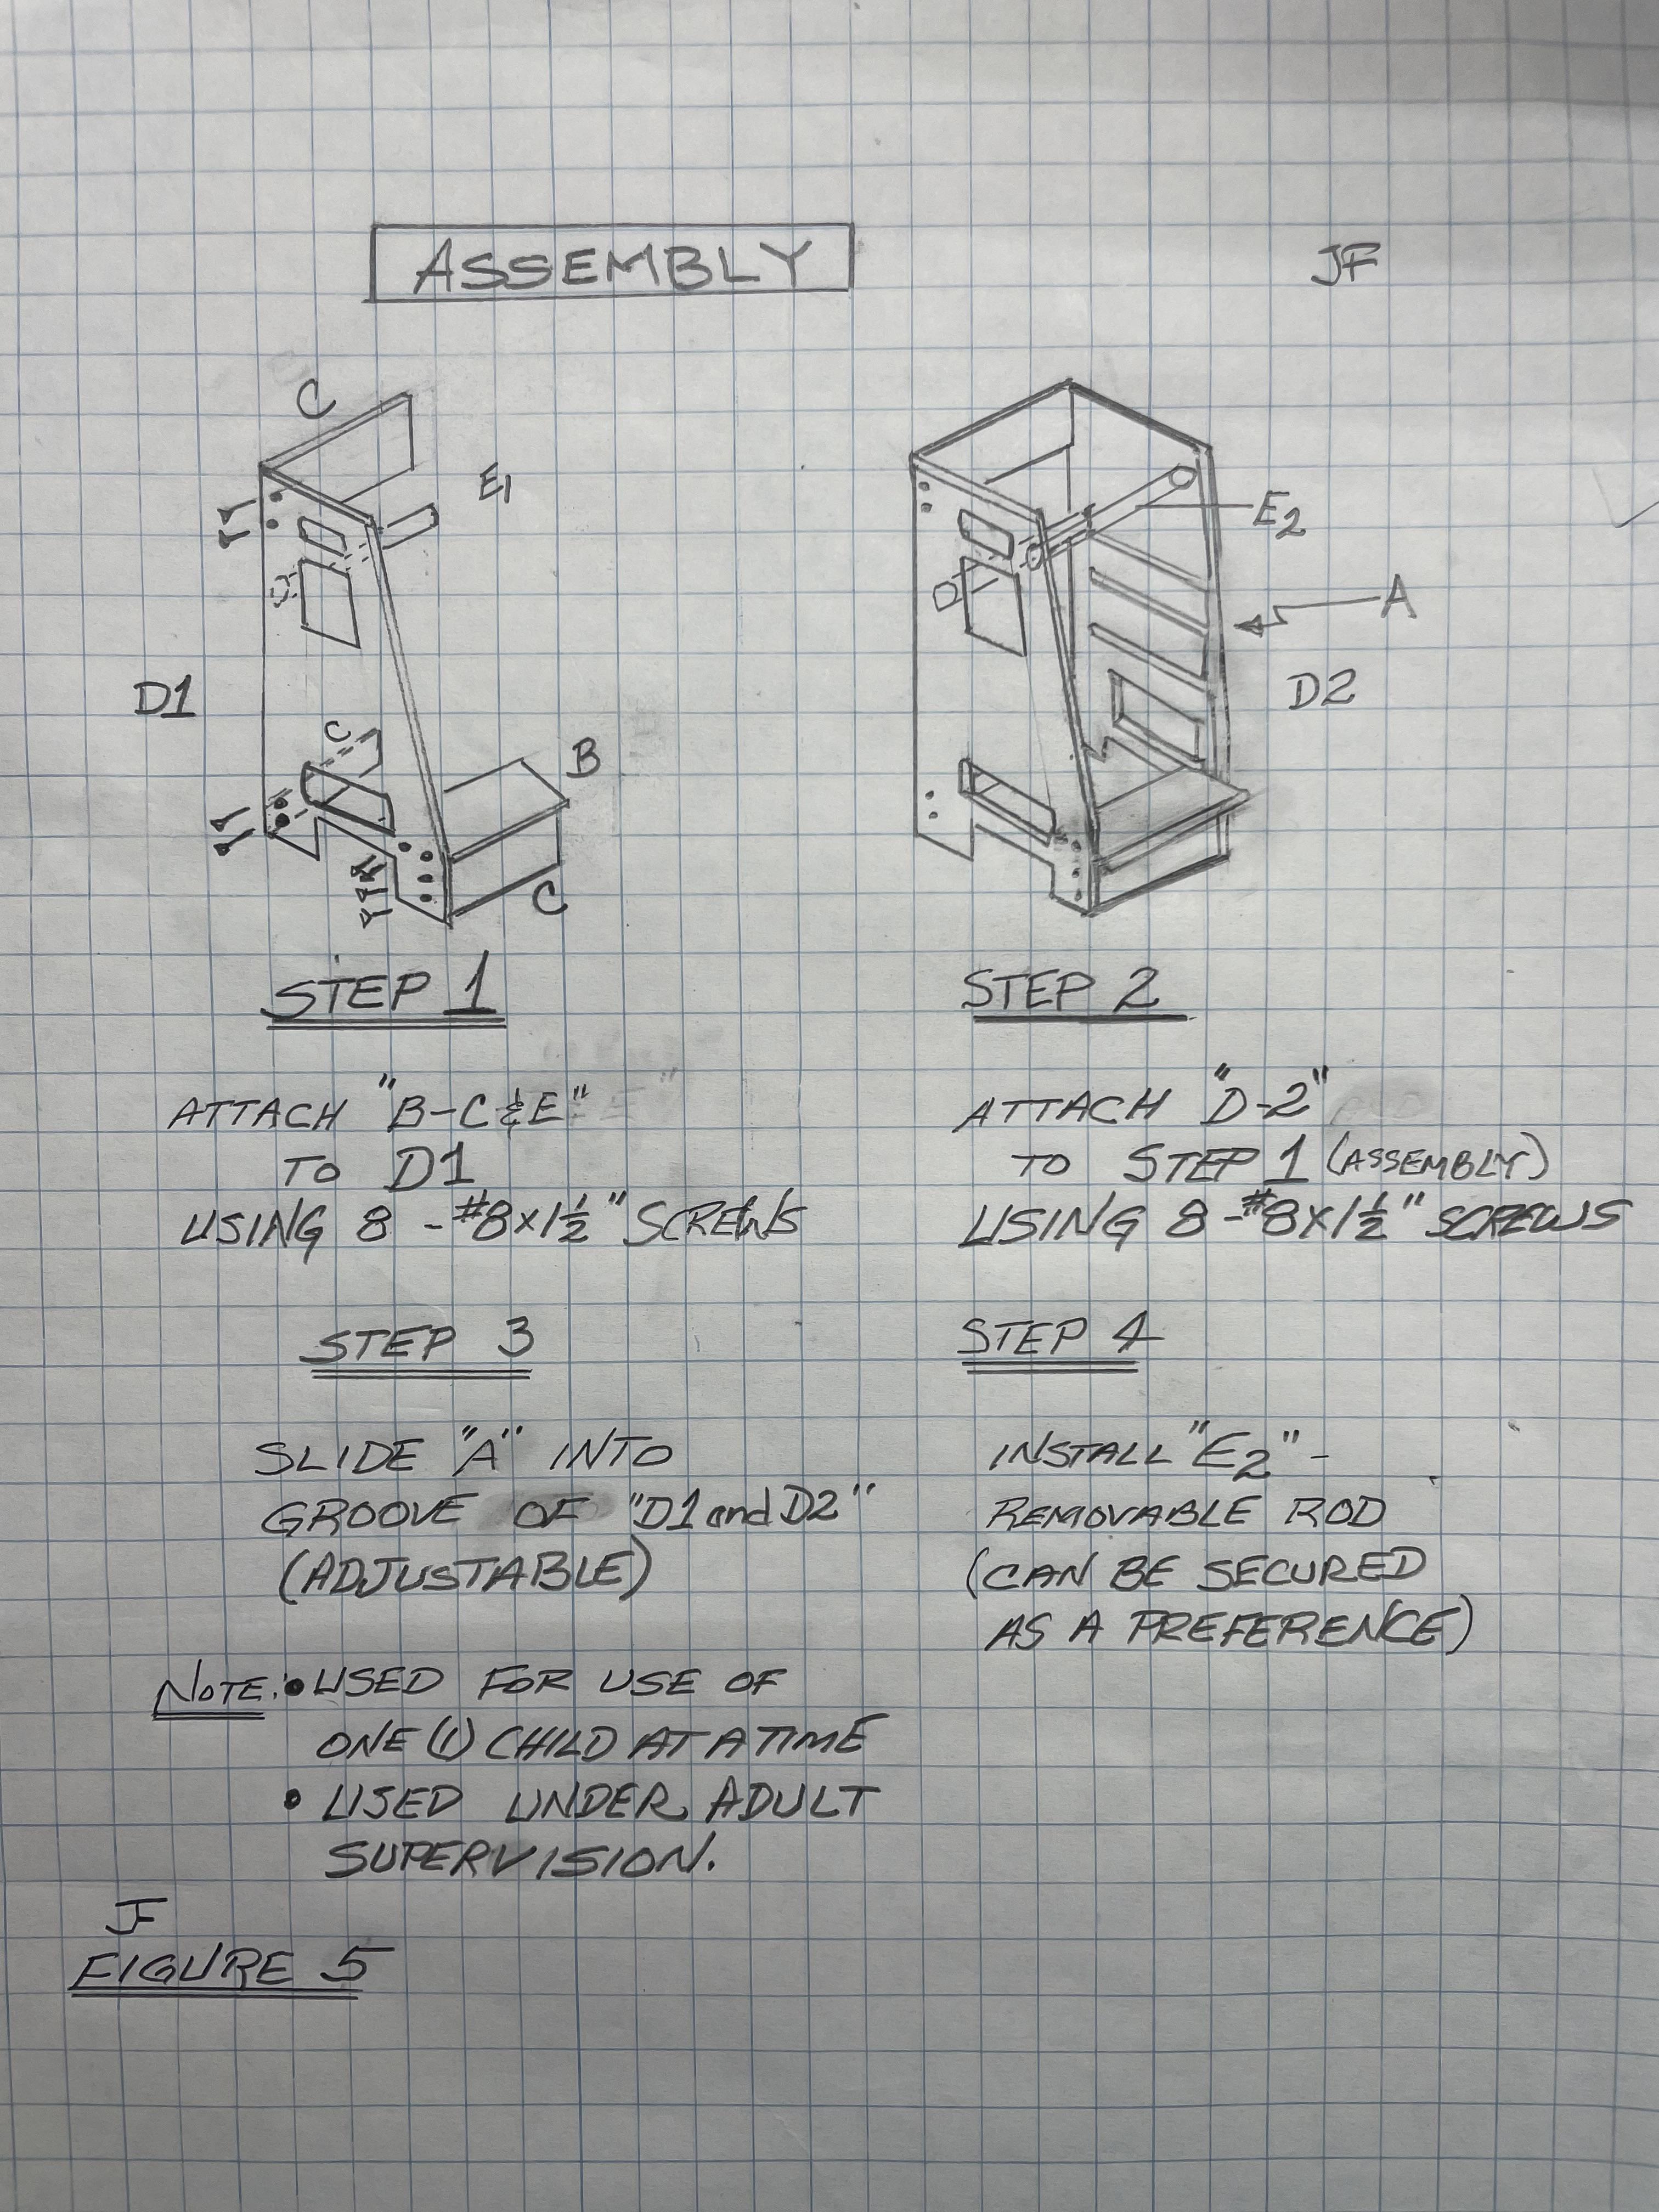 ASSEMBLY
JF
C
E1
D1
C
B
C
E2
A
D2
STEP 1
ATTACH "B-C & E"
TO D1
USING 8 - #8x1½" SCREWS
STEP 2
ATTACH "D-2"
TO STEP 1 (ASSEMBLY)
USING 8-#8x1½" SCREWS
STEP 3
SLIDE "A" INTO
GROOVE OF "D1 and D2"
(ADJUSTABLE)
STEP 4
INSTALL "E2" -
REMOVABLE ROD
(CAN BE SECURED
AS A PREFERENCE)
NOTE: • USED FOR USE OF
ONE (1) CHILD AT A TIME
• USED UNDER ADULT
SUPERVISION.
JF
FIGURE 5